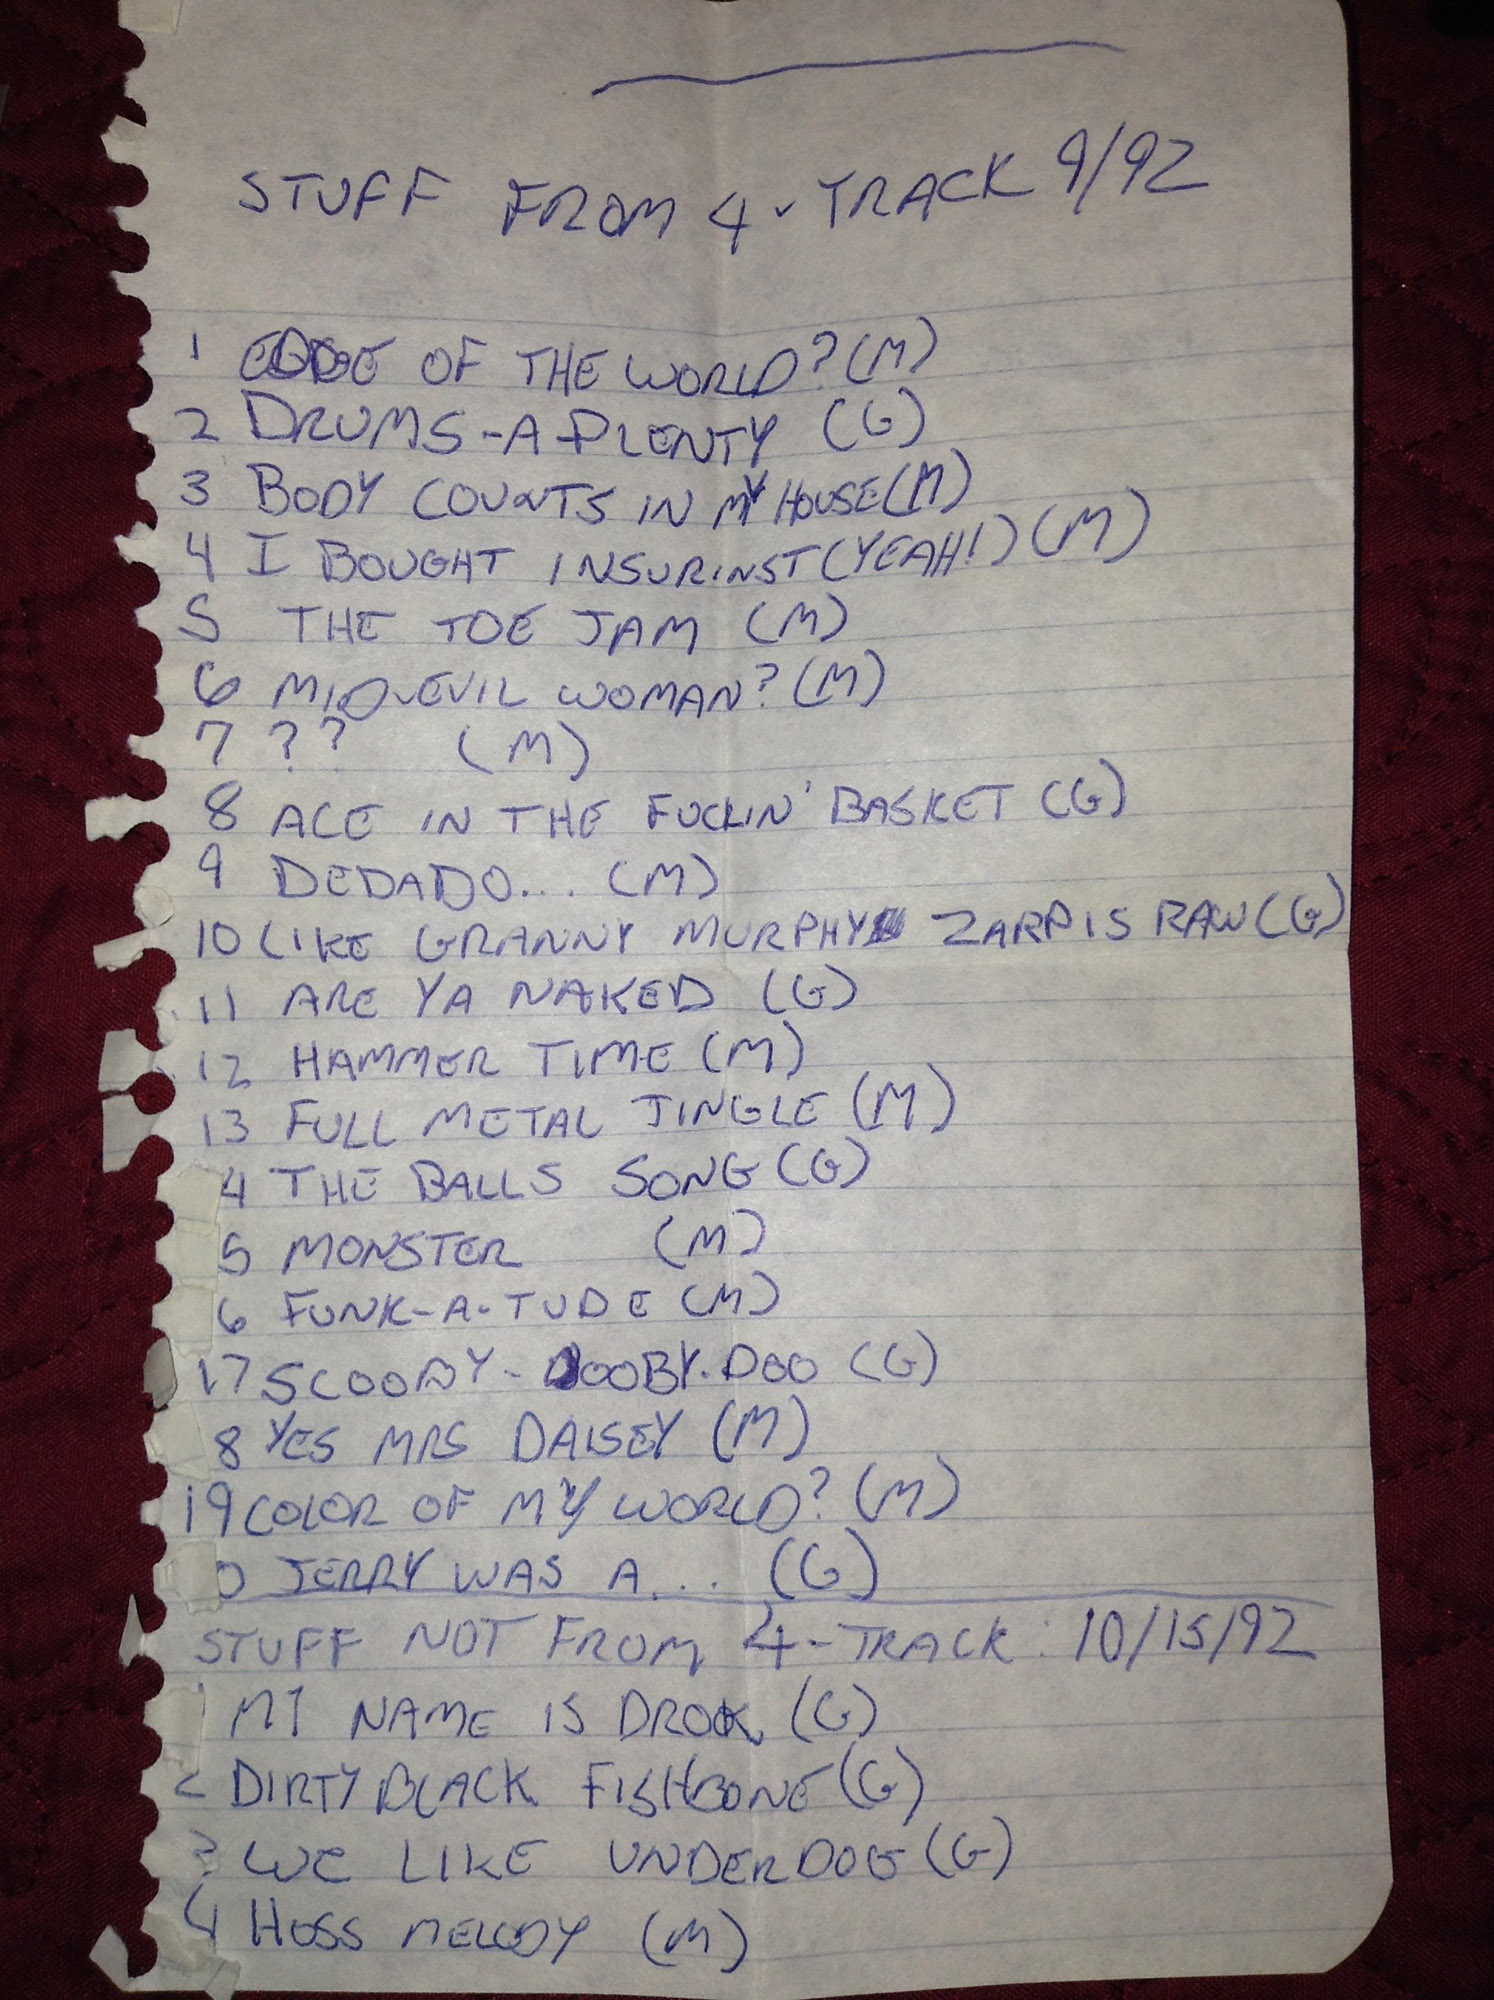 STUFF FROM 4-TRACK 9/92
1 EDGE OF THE WORLD? (M)
2 DRUMS-A-PLENTY (G)
3 BODY COUNTS IN MY HOUSE (M)
4 I BOUGHT INSURINST (YEAH!) (M)
5 THE TOE JAM (M)
6 MID-EVIL WOMAN? (M)
7 ?? (M)
8 ACE IN THE FUCKIN' BASKET (G)
9 DEDADO... (M)
10 LIKE GRANNY MURPHY ZARP IS RAW (G)
11 ARE YA NAKED (G)
12 HAMMER TIME (M)
13 FULL METAL JINGLE (M)
4 THE BALLS SONG (G)
5 MONSTER (M)
6 FUNK-A-TUDE (M)
17 SCOOBY-DOOBY-DOO (G)
8 YES MRS DAISEY (M)
19 COLOR OF MY WORLD? (M)
0 JERRY WAS A... (G)
STUFF NOT FROM 4-TRACK: 10/15/92
1 MY NAME IS DROOK (G)
2 DIRTY BLACK FISHBONE (G)
3 WE LIKE UNDERDOG (G)
4 HOSS MELODY (M)